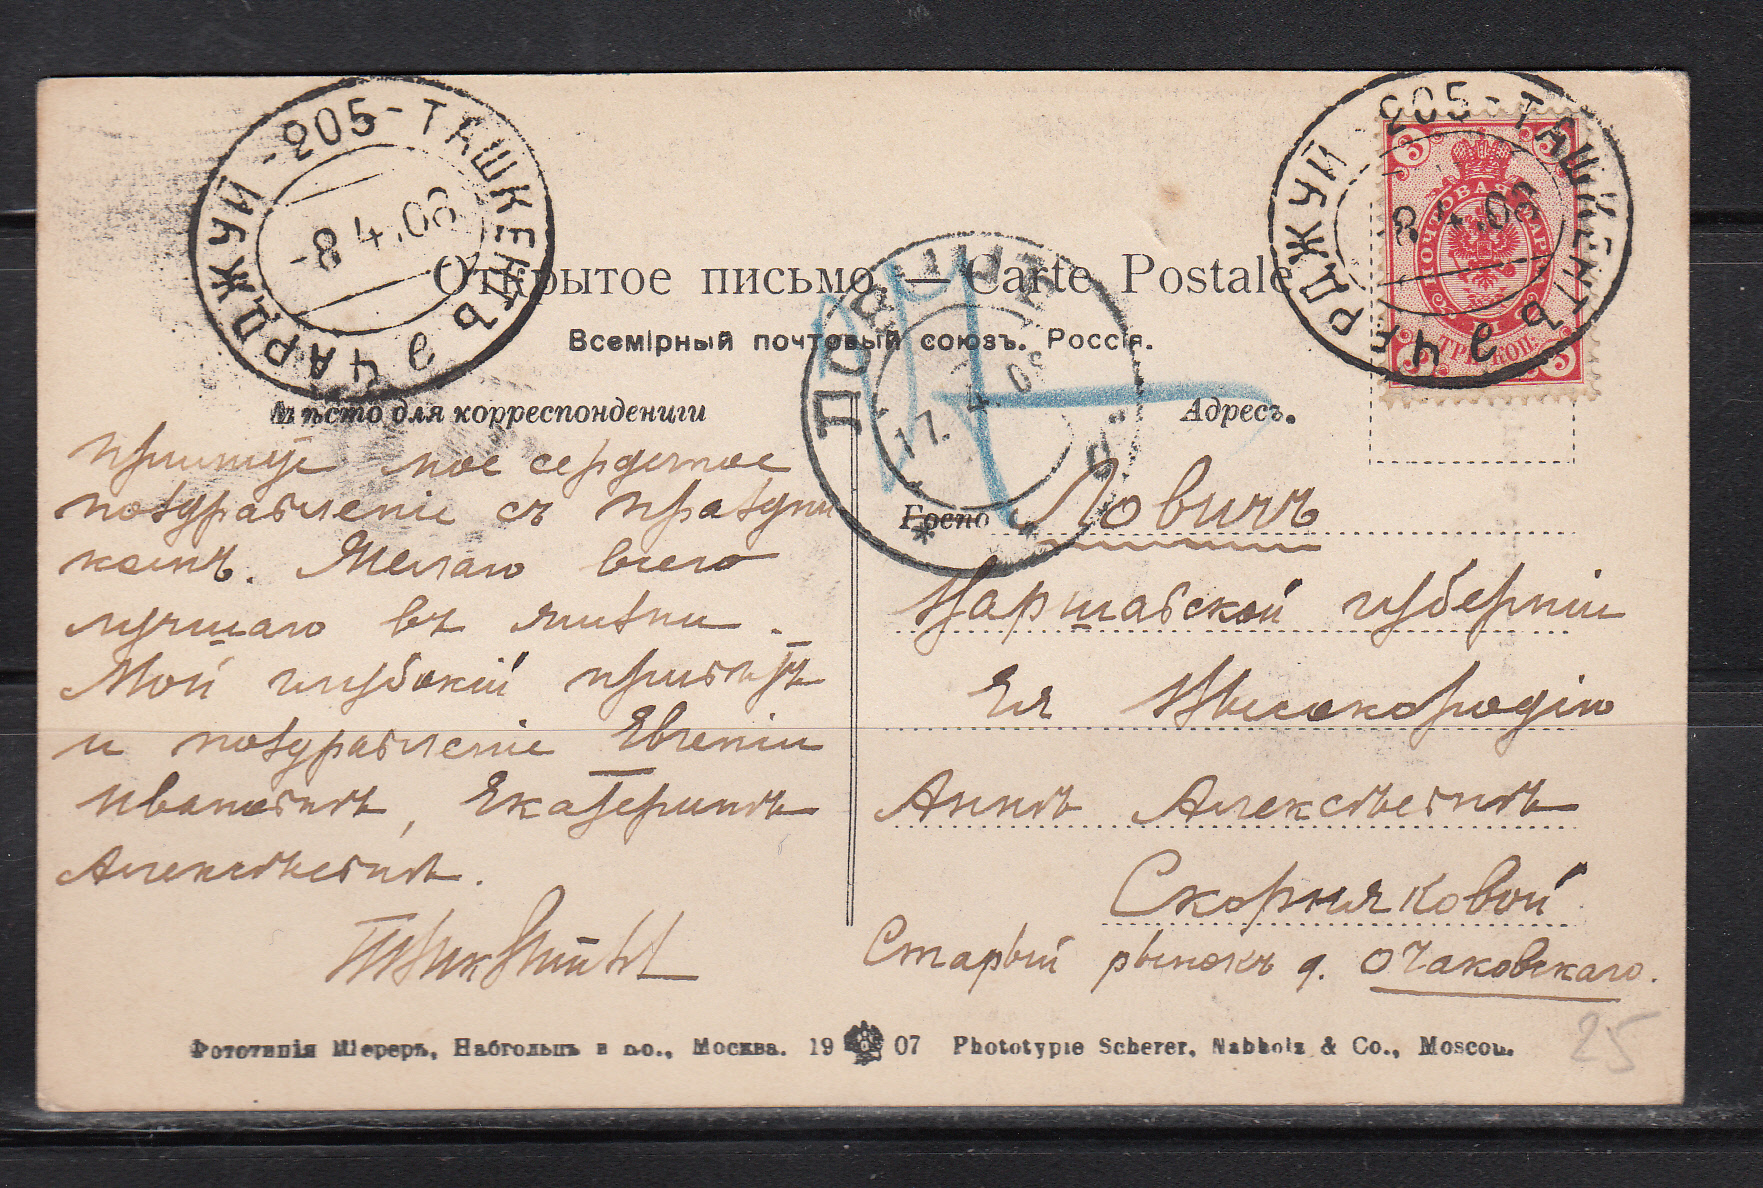 ЧАРДЖУЙ - 205 - ТАШКЕНТЪ
-8 4.08
ЧАРДЖУЙ - 205 - ТАШКЕНТЪ
8 4.08
3
ПОЧТОВАЯ МАРКА
ТРИ КОП.
Открытое письмо — Carte Postale
Всемірный почтовый союзъ. Россія.
17. 4. 08
Мѣсто для корреспонденціи
Примите мое сердечное
поздравленіе съ праздни
комъ. Желаю всего
лучшаго въ жизни.
Мой глубокій привѣтъ
и поздравленіе Евгеніи
Ивановнѣ, Екатеринѣ
Алексѣевнѣ.
Адресъ.
Госпо Ловичъ
Варшавской губерніи
Ея Высокородію
Аннѣ Алексѣевнѣ
Скорняковой
Старый рынокъ д. Очаковскаго.
25
Фототипія Шереръ, Набгольцъ и Ко., Москва. 19 07 Phototypie Scherer, Nabholz & Co., Moscou.